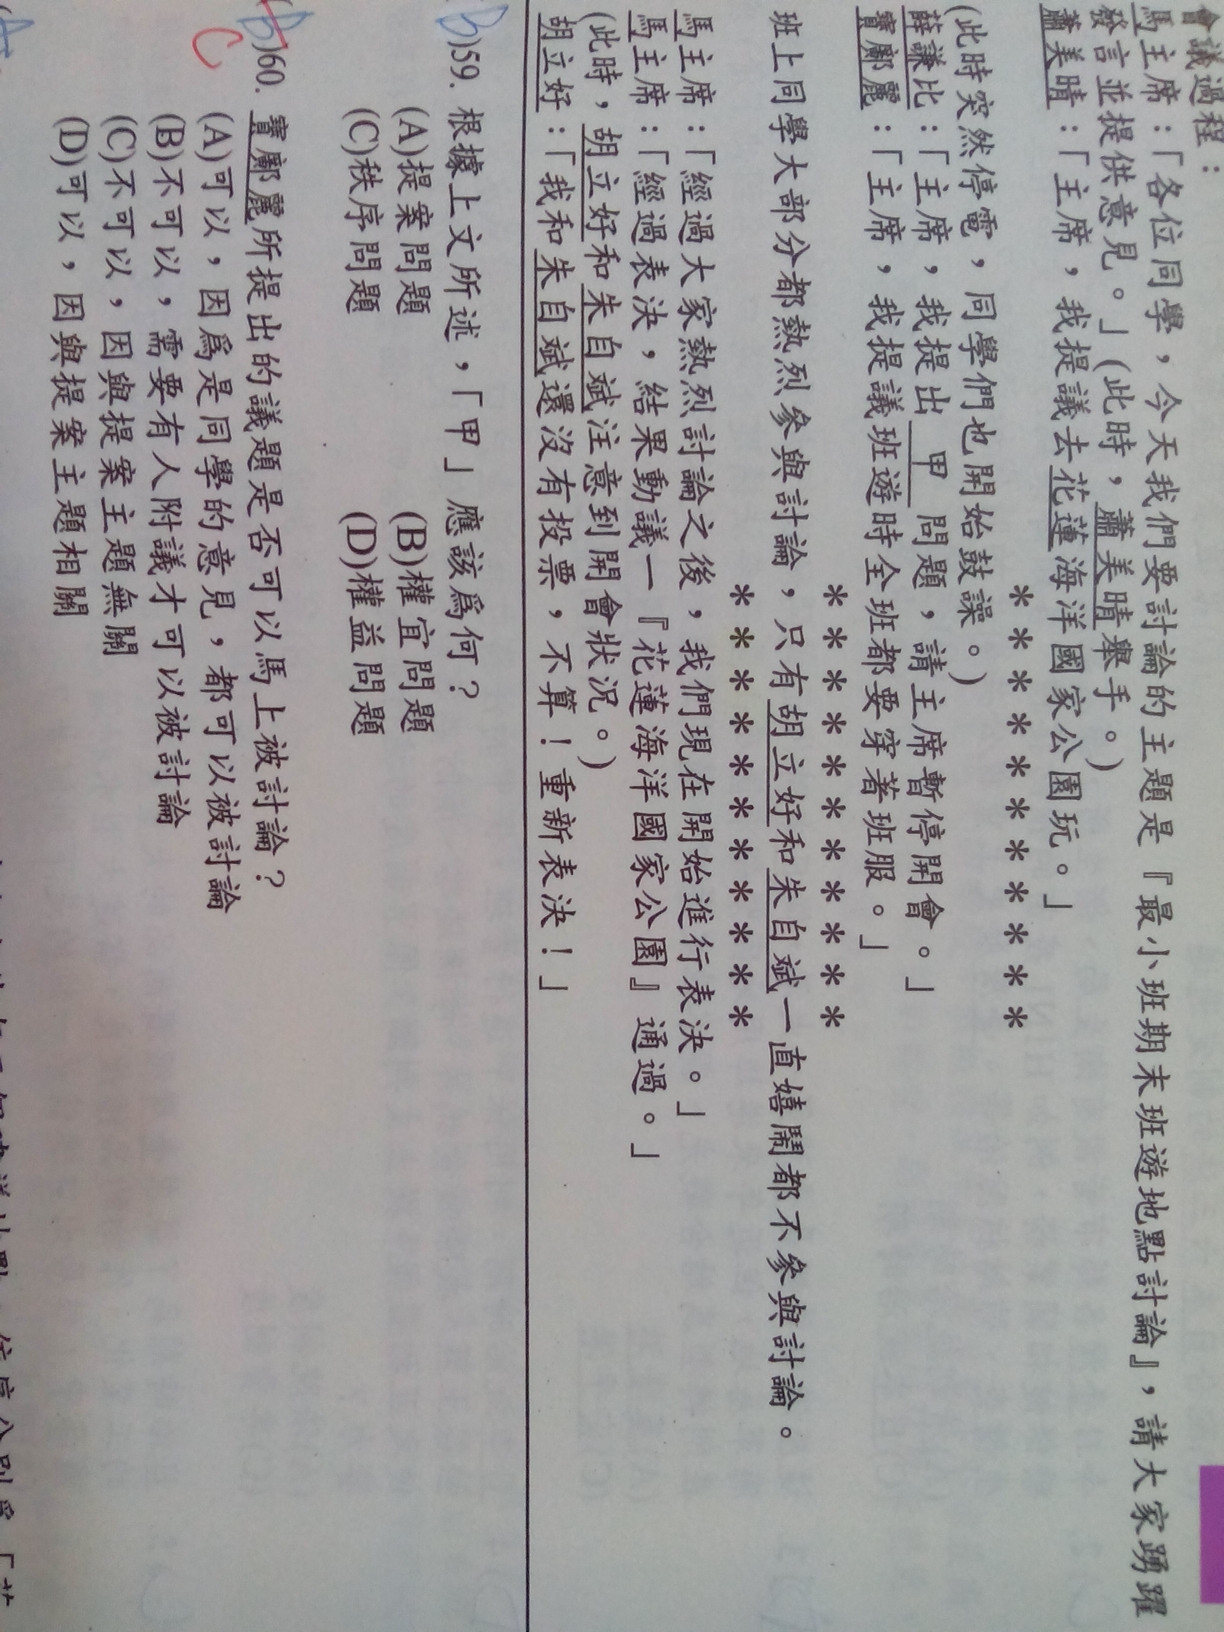 會議過程：
馬主席：「各位同學，今天我們要討論的主題是『最小班期末班遊地點討論』，請大家踴躍
發言並提供意見。」(此時，蕭美晴舉手。)
蕭美晴：「主席，我提議去花蓮海洋國家公園玩。」
＊＊＊＊＊＊＊＊＊＊＊
(此時突然停電，同學們也開始鼓譟。)
薛謙比：「主席，我提出 甲 問題，請主席暫停開會。」
寶鄺麗：「主席，我提議班遊時全班都要穿著班服。」
＊＊＊＊＊＊＊＊＊＊＊
班上同學大部分都熱烈參與討論，只有胡立好和朱自斌一直嬉鬧都不參與討論。
＊＊＊＊＊＊＊＊＊＊＊
馬主席：「經過大家熱烈討論之後，我們現在開始進行表決。」
馬主席：「經過表決，結果動議一『花蓮海洋國家公園』通過。」
(此時，胡立好和朱自斌注意到開會狀況。)
胡立好：「我和朱自斌還沒有投票，不算！重新表決！」
B)59. 根據上文所述，「甲」應該為何？
(A)提案問題 (B)權宜問題
(C)秩序問題 (D)權益問題
(B)60. 寶鄺麗所提出的議題是否可以馬上被討論？
C
(A)可以，因為是同學的意見，都可以被討論
(B)不可以，需要有人附議才可以被討論
(C)不可以，因與提案主題無關
(D)可以，因與提案主題相關